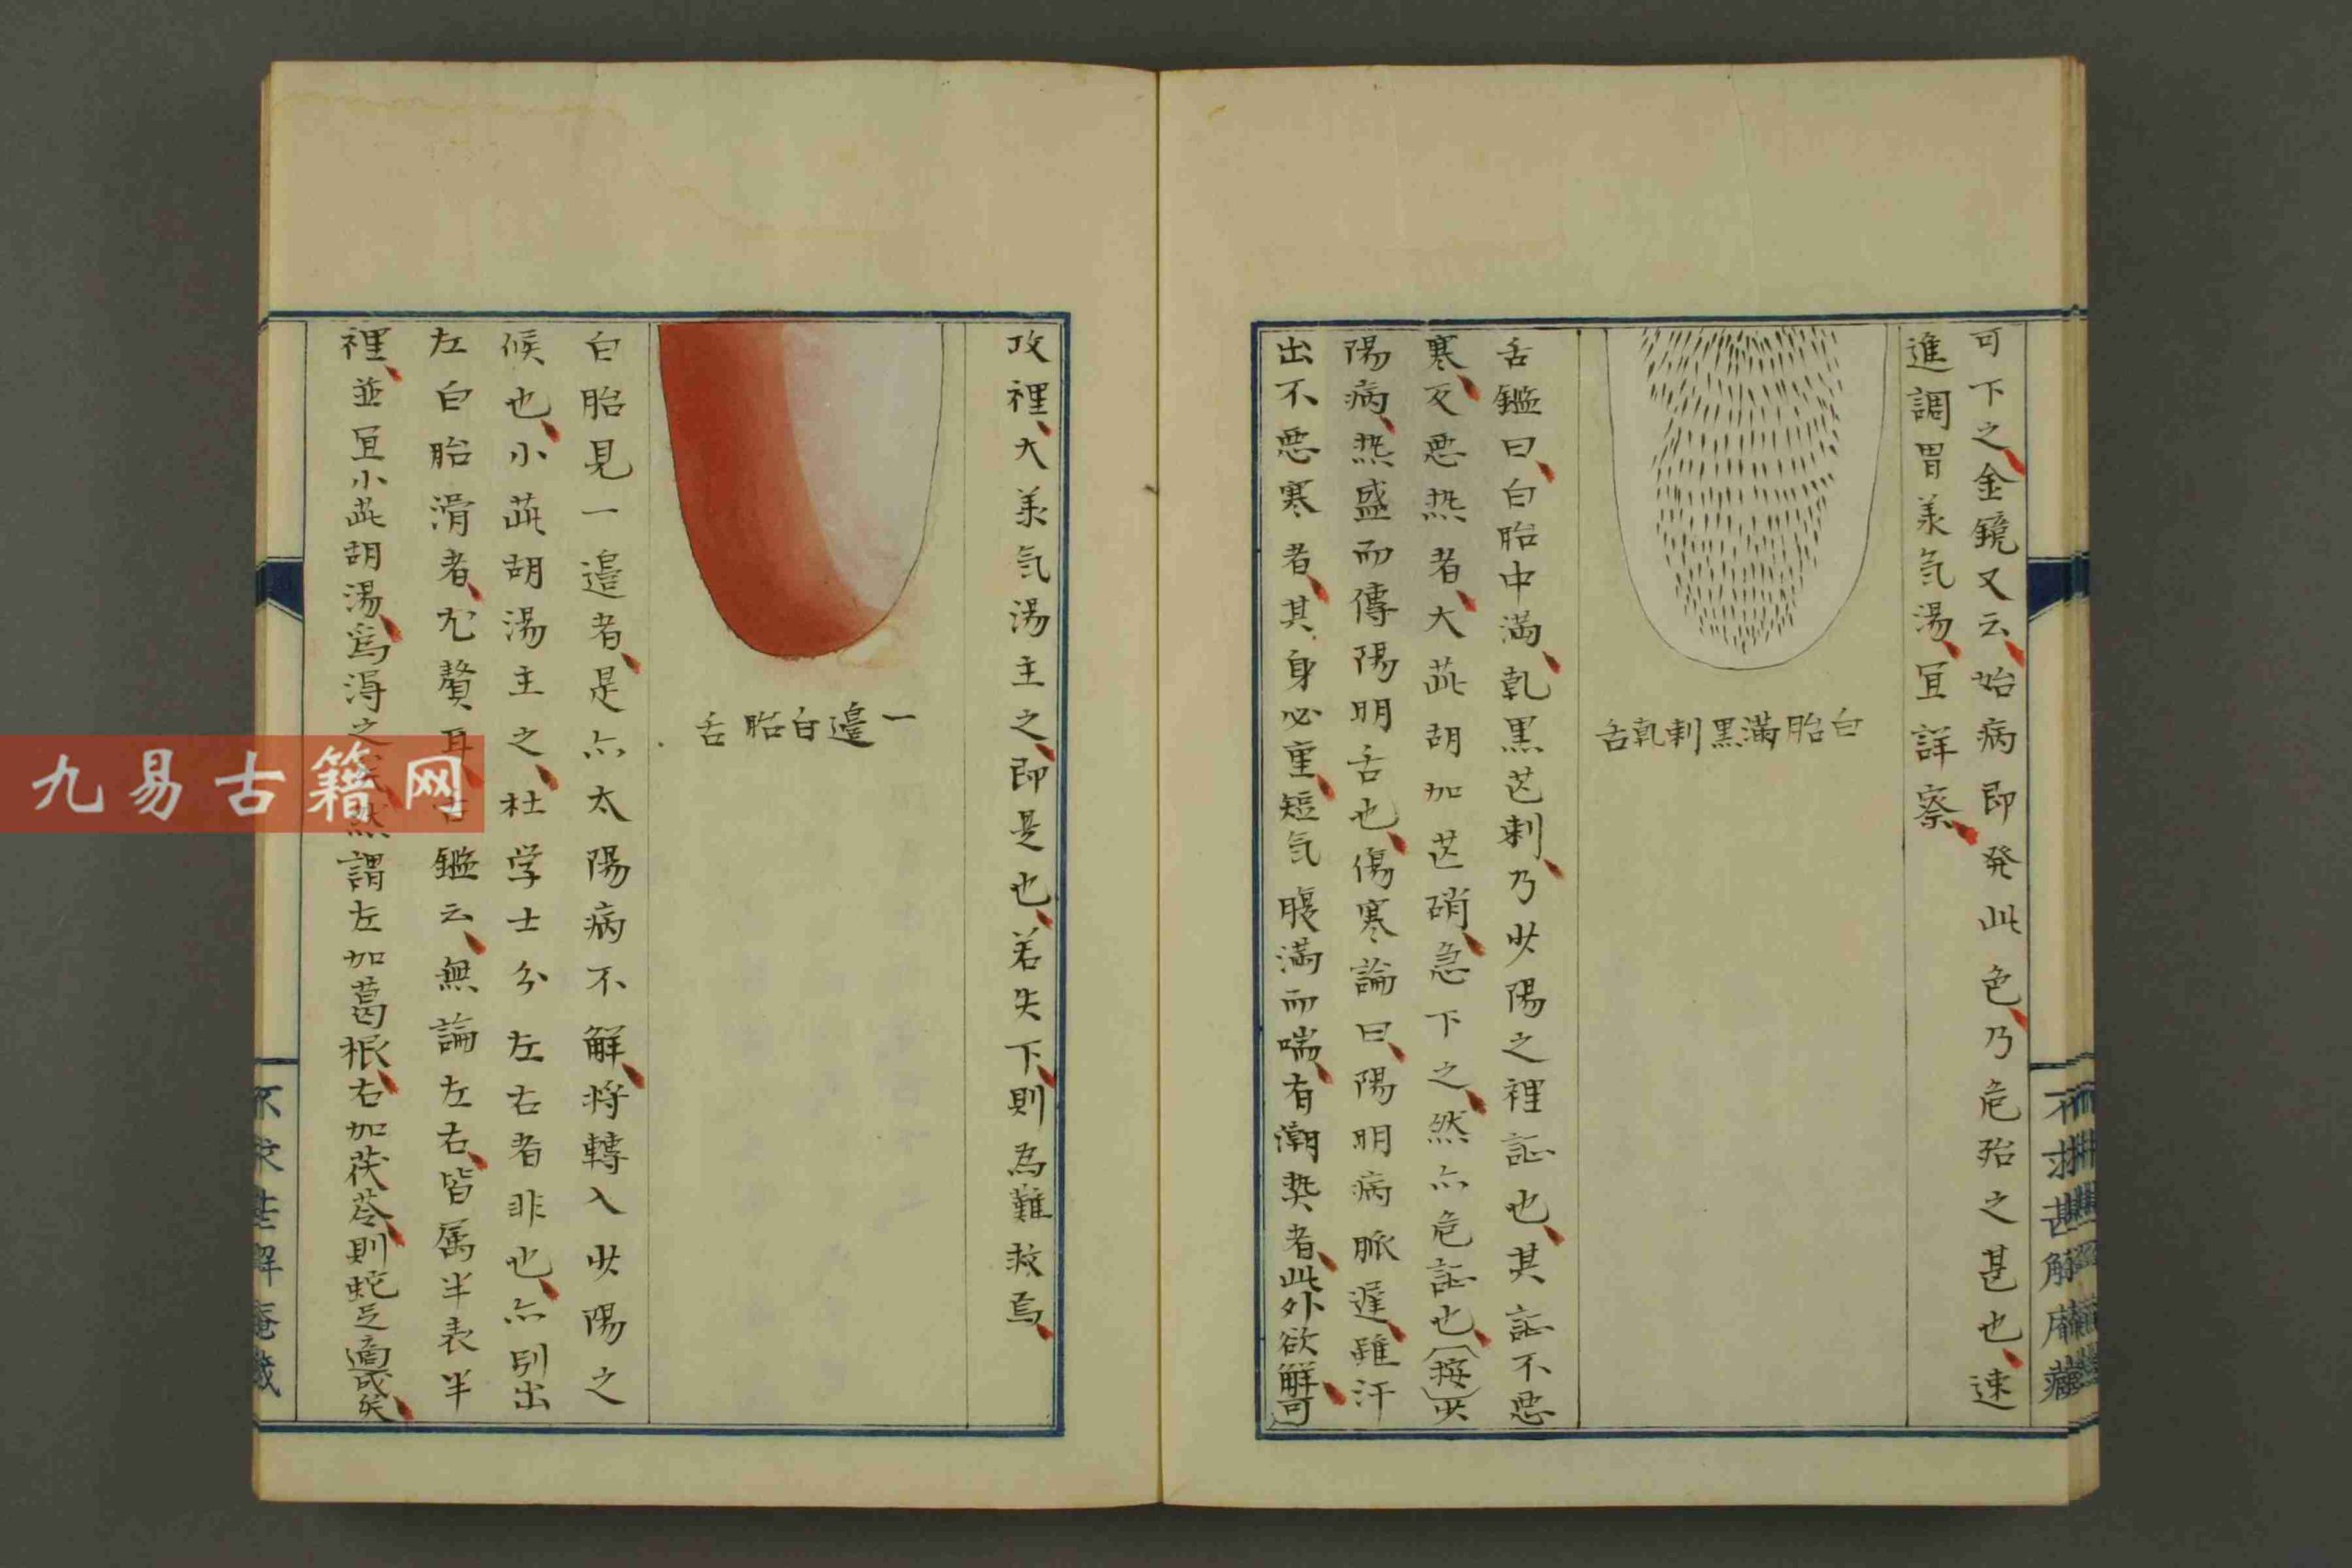 可下之、金鏡又云、始病即発此色、乃危殆之甚也、速
進調胃美気湯、宜詳察、
白胎滿黑刺乾舌
舌鑑曰、白胎中滿、乾黑芒刺、乃少陽之裡証也、其証不悪
寒、反悪热者、大茈胡加芒硝、急下之、然亦危証也、(按)少
陽病、热盛而傳陽明舌也、傷寒論曰、陽明病脈遲、雖汗
出不悪寒者、其身必重、短気腹満而喘、有潮热者、此外欲解、可
攻裡、大美気湯主之、即是也、若失下、則為難救焉、
一邉白胎舌
白胎見一邉者、是亦太陽病不解、将轉入少陽之
候也、小茈胡湯主之、杜学士分左右者非也、亦別出
左白胎滑者、尤贅耳、舌鑑云、無論左右、皆属半表半
裡、並宜小茈胡湯、爲得之、然謂左加葛根、右加茯苓、則蛇足適成矣、
不求甚解庵藏
九易古籍网